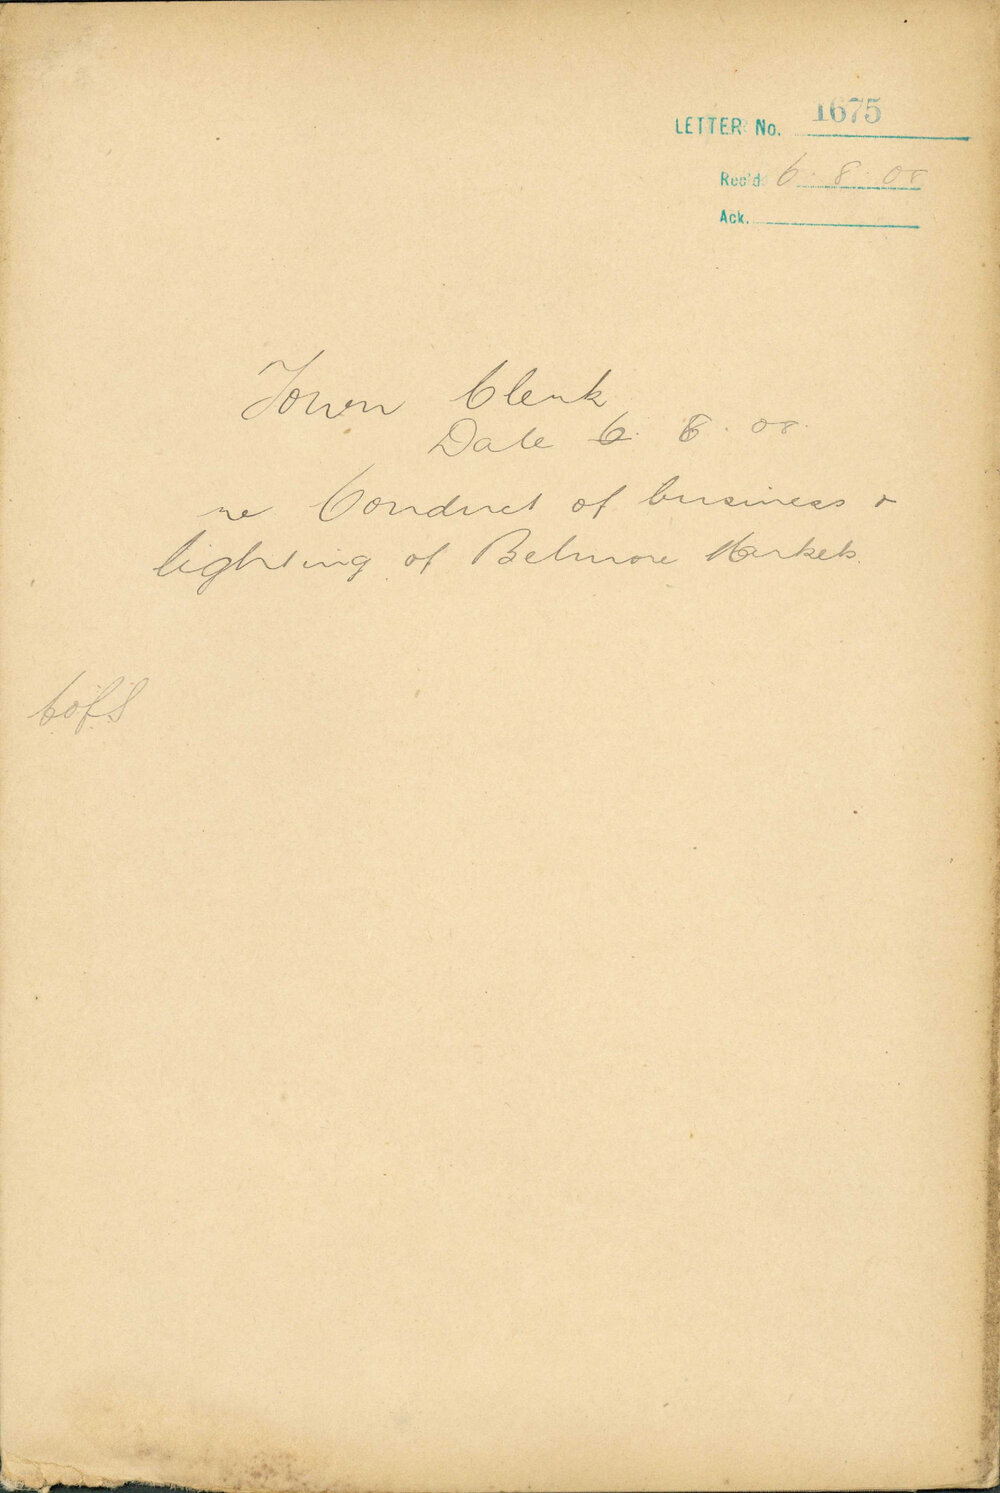 LETTER No. 1675
Rec'd 6. 8. 08
Ack.
Town Clerk
Date 6. 8. 08.
re Conduct of business &
lighting of Belmore Markets.
C.of.S